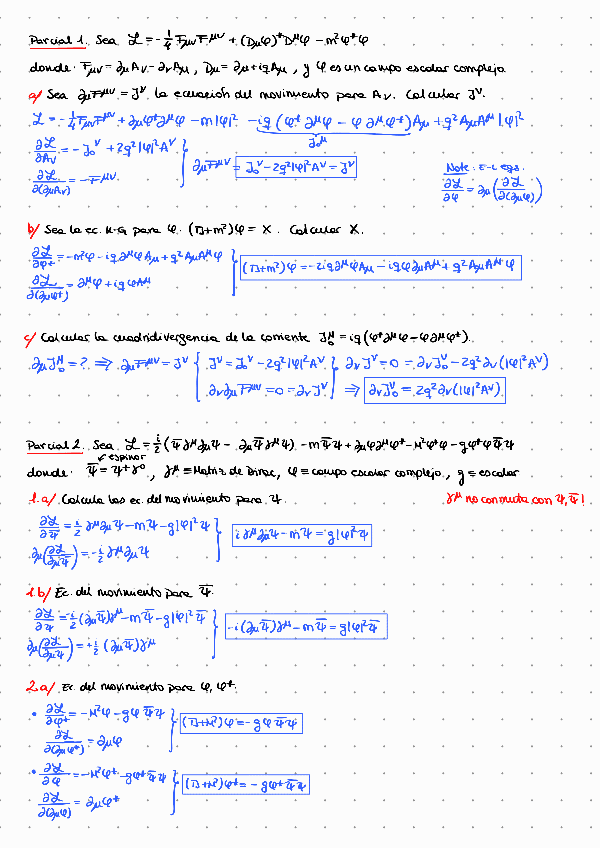 Parcial 1. Sea ℒ = -1/4 Fμν F^μν + (Dμφ)*D^μφ - m²φ*φ
donde: Fμν = ∂μAν - ∂νAμ, Dμ = ∂μ + iqAμ, y φ es un campo escalar complejo.
a/ Sea ∂μF^μν = J^ν la ecuación del movimiento para Aν. Calcular J^ν.
ℒ = -1/4 Fμν F^μν + ∂μφ*∂^μφ - m|φ|² - iq(φ*∂^μφ - φ∂^μφ*)Aμ + q²AμA^μ|φ|²
J₀^μ
∂ℒ/∂Aν = -J₀^ν + 2q²|φ|²A^ν
∂ℒ/∂(∂μAν) = -F^μν
∂μF^μν = J₀^ν - 2q²|φ|²A^ν = J^ν
Note: E-L eqs.
∂ℒ/∂φ = ∂μ(∂ℒ/∂(∂μφ))
b/ Sea la ec. K-G para φ: (□+m²)φ = X. Calcular X.
∂ℒ/∂φ* = -m²φ - iq∂^μφAμ + q²AμA^μφ
∂ℒ/∂(∂μφ*) = ∂^μφ + iqφA^μ
(□+m²)φ = -2iq∂^μφAμ - iqφ∂μA^μ + q²AμA^μφ
c/ Calcular la cuadridivergencia de la corriente J₀^μ = iq(φ*∂^μφ - φ∂^μφ*).
∂μJ₀^μ = ? ⇒ ∂μF^μν = J^ν { J^ν = J₀^ν - 2q²|φ|²A^ν } ∂νJ^ν = 0 = ∂νJ₀^ν - 2q²∂ν(|φ|²A^ν)
∂ν∂μF^μν = 0 = ∂νJ^ν ⇒ ∂νJ₀^ν = 2q²∂ν(|φ|²A^ν)
Parcial 2. Sea ℒ = i/2(Ψ̄γ^μ∂μΨ - ∂μΨ̄γ^μΨ) - mΨ̄Ψ + ∂μφ∂^μφ* - M²φ*φ - gφ*φΨ̄Ψ
espinor
donde: Ψ̄ = Ψ†γ⁰, γ^μ ≡ Matriz de Dirac, φ ≡ campo escalar complejo, g ≡ escalar
1.a/ Calcula las ec. del movimiento para Ψ.
γ^μ no conmuta con Ψ, Ψ̄!
∂ℒ/∂Ψ̄ = i/2 γ^μ∂μΨ - mΨ - g|φ|²Ψ
∂μ(∂ℒ/∂μΨ̄) = -i/2 γ^μ∂μΨ
iγ^μ∂μΨ - mΨ = g|φ|²Ψ
1.b/ Ec. del movimiento para Ψ̄.
∂ℒ/∂Ψ = -i/2(∂μΨ̄)γ^μ - mΨ̄ - g|φ|²Ψ̄
∂μ(∂ℒ/∂μΨ) = +i/2 (∂μΨ̄)γ^μ
-i(∂μΨ̄)γ^μ - mΨ̄ = g|φ|²Ψ̄
2.a/ Ec. del movimiento para φ, φ*.
• ∂ℒ/∂φ* = -M²φ - gφΨ̄Ψ
∂ℒ/∂(∂μφ*) = ∂μφ
(□+M²)φ = -gφΨ̄Ψ
• ∂ℒ/∂φ = -M²φ* - gφ*Ψ̄Ψ
∂ℒ/∂(∂μφ) = ∂μφ*
(□+M²)φ* = -gφ*Ψ̄Ψ